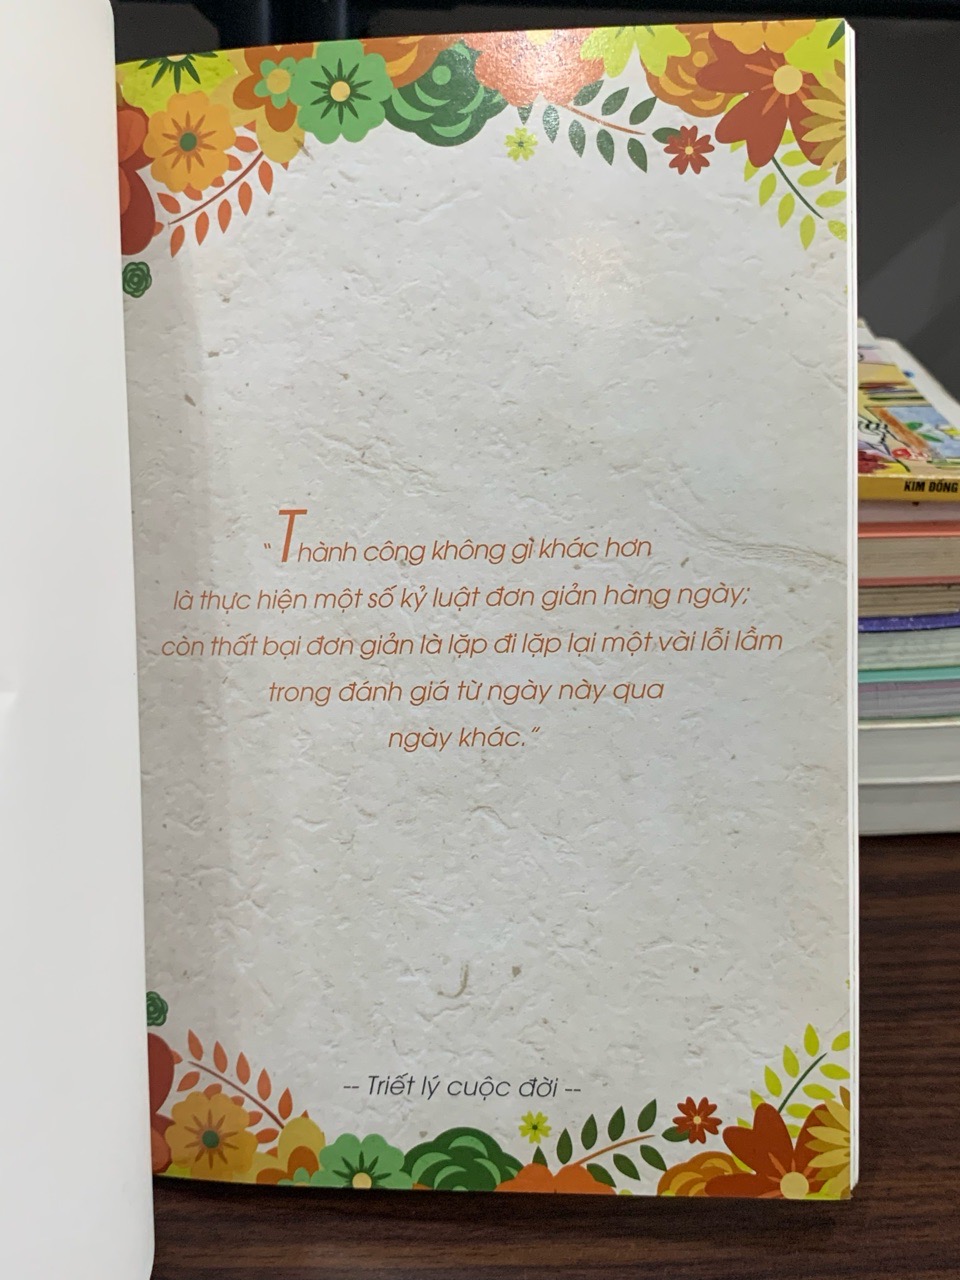 "Thành công không gì khác hơn
là thực hiện một số kỷ luật đơn giản hàng ngày;
còn thất bại đơn giản là lặp đi lặp lại một vài lỗi lầm
trong đánh giá từ ngày này qua
ngày khác."
-- Triết lý cuộc đời --
KIM ĐỒNG